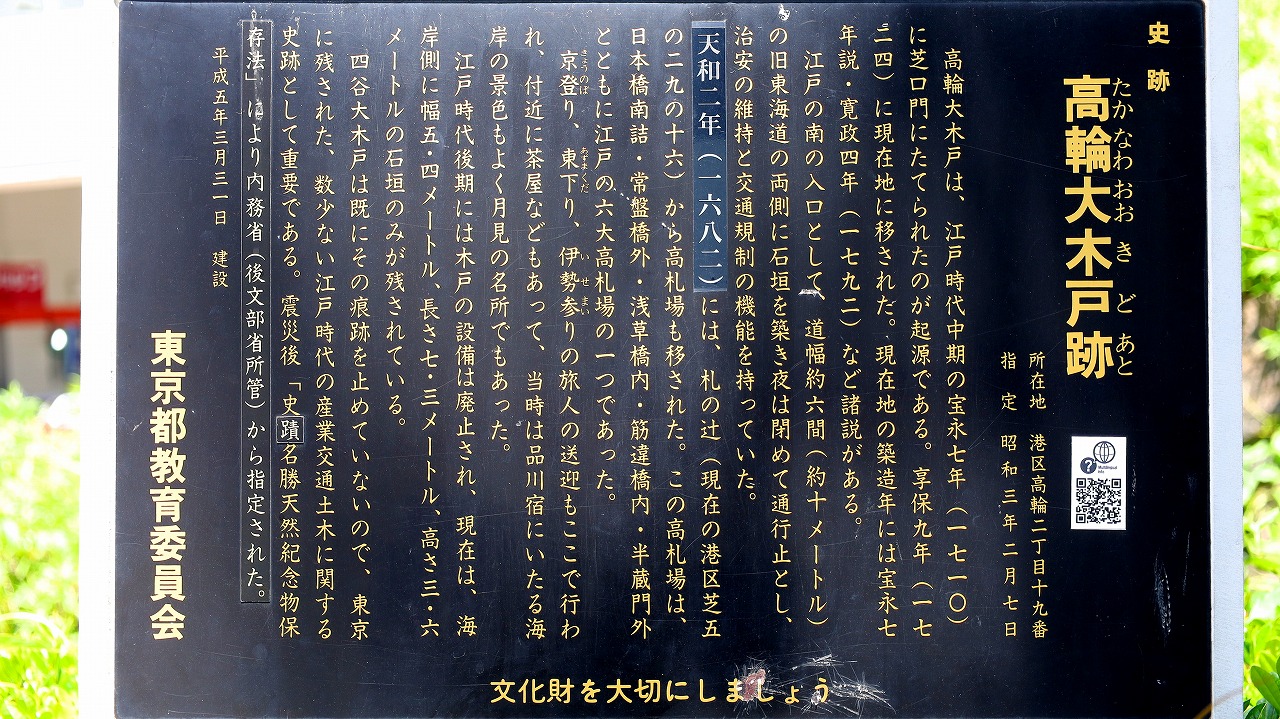 史跡
高輪大木戸跡
たかなわおおきどあと
所在地 港区高輪二丁目十九番
指定 昭和三年二月七日
高輪大木戸は、江戸時代中期の宝永七年（一七一〇）
に芝口門にたてられたのが起源である。享保九年（一七
二四）に現在地に移された。現在地の築造年には宝永七
年説・寛政四年（一七九二）など諸説がある。
江戸の南の入口として、道幅約六間（約十メートル）
の旧東海道の両側に石垣を築き夜は閉めて通行止とし、
治安の維持と交通規制の機能を持っていた。
天和二年（一六八二）には、札の辻（現在の港区芝五
の二九の十六）から高札場も移された。この高札場は、
日本橋南詰・常盤橋外・浅草橋内・筋違橋内・半蔵門外
とともに江戸の六大高札場の一つであった。
京登り、東下り、伊勢参りの旅人の送迎もここで行わ
きょうのぼ あずまくだ いせまい
れ、付近に茶屋などもあって、当時は品川宿にいたる海
岸の景色もよく月見の名所でもあった。
江戸時代後期には木戸の設備は廃止され、現在は、海
岸側に幅五・四メートル、長さ七・三メートル、高さ三・六
メートルの石垣のみが残されている。
四谷大木戸は既にその痕跡を止めていないので、東京
に残された、数少ない江戸時代の産業交通土木に関する
史跡として重要である。震災後「史蹟名勝天然紀念物保
存法」により内務省（後文部省所管）から指定された。
平成五年三月三一日 建設
東京都教育委員会
文化財を大切にしましょう
Multilingual
info